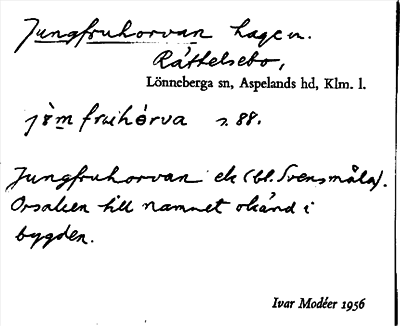 Jungfruhorvan hagen.
Råttelsebo,
Lönneberga sn, Aspelands hd, Klm. l.
s. 88.
Jungfruhorvan ek (bl. Svensmåla).
Orsaken till namnet okänd i
bygden.
Ivar Modéer 1956